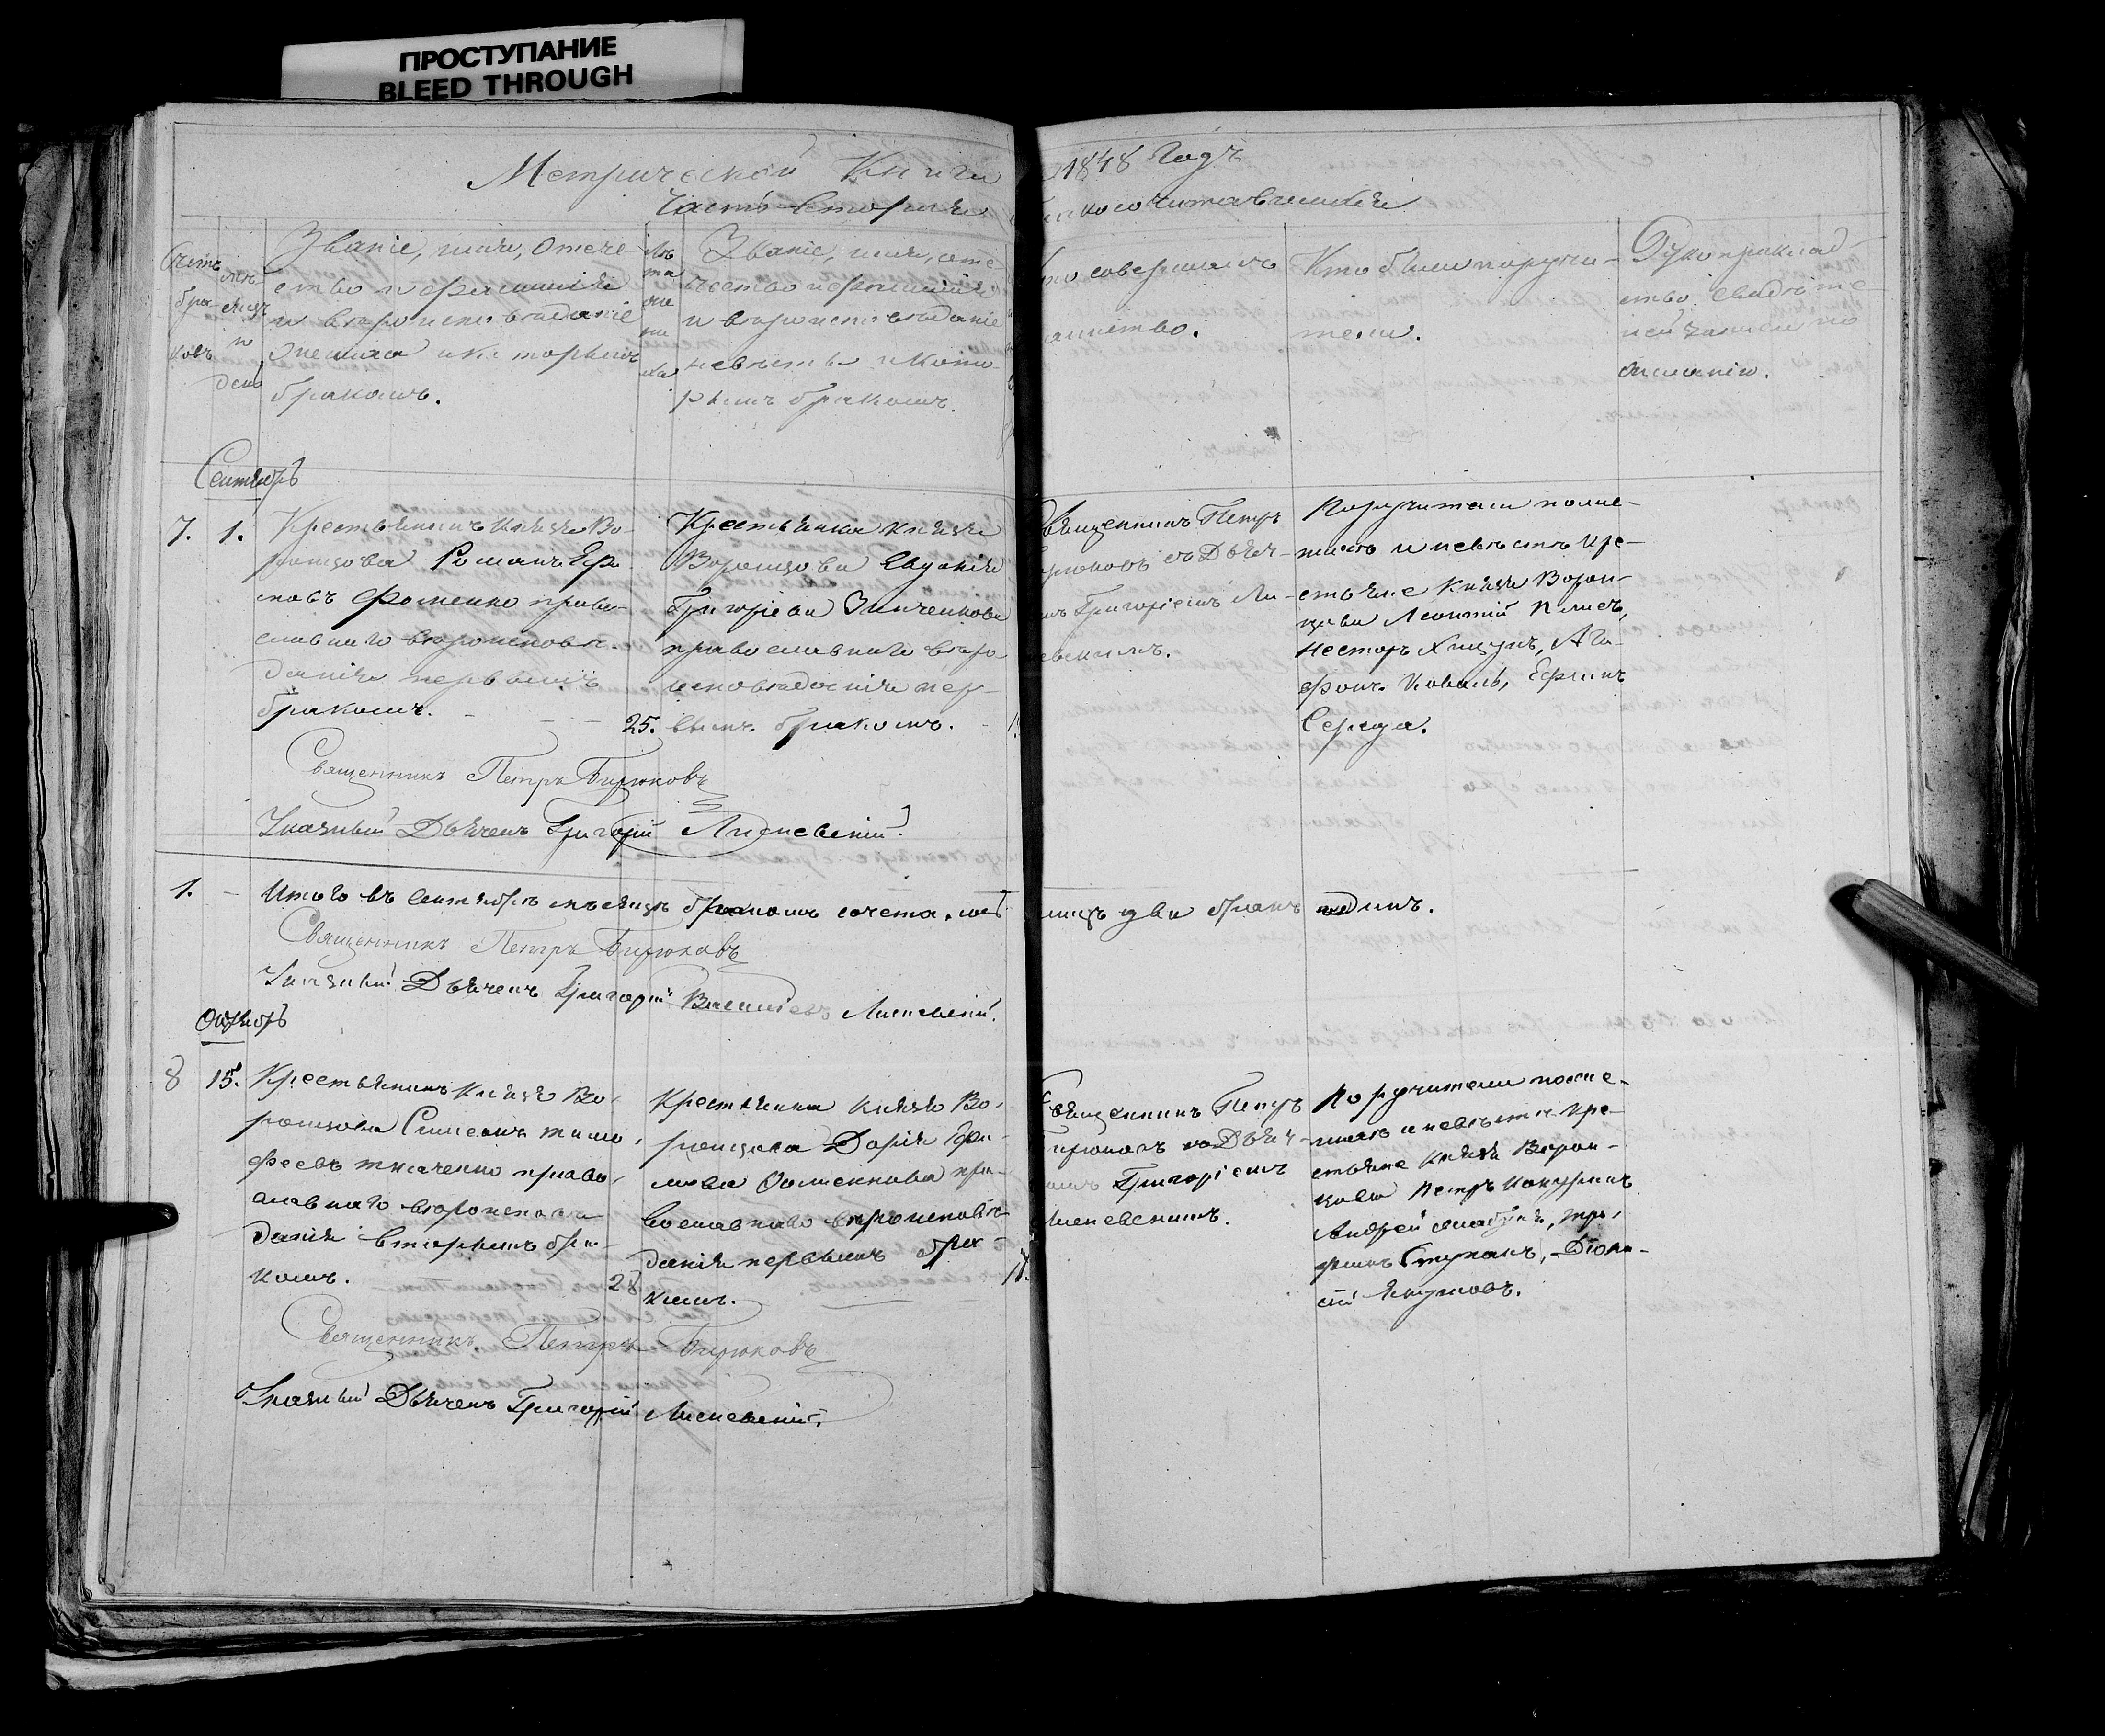 ПРОСТУПАНИЕ
BLEED THROUGH
Метрической Книги
1848 Годъ
Часть вторая
Счетъ
бра-
ковъ
мѣ-
сяцъ
и
день
Званіе, имя, отече-
ство и фамилія
и вѣроисповѣданіе
жениха и которымъ
бракомъ.
Лѣ
та
же
ни
ха
Званіе, имя, оте-
чество и фамилія
и вѣроисповѣданіе
невѣсты и кото-
рымъ бракомъ.
то совершалъ
таинство.
Кто были поручи-
тели.
Рукоприклад-
ство свидѣте-
лей записи по
желанію.
Сентябрь
7. 1.
Крестьянинъ Князя Во-
ронцова Романъ Ефи
мовъ Фоменко право-
славнаго вѣроисповѣ-
данія первымъ
бракомъ. - - - 25.
Крестьянка Князя
Воронцова Евдокія
Григорiева Зинченкова
православнаго вѣро
исповѣданія пер-
вымъ бракомъ. -
Священникъ Петръ
Бирюковъ съ Дьяч-
омъ Григоріемъ Ли-
евскимъ.
Поручители по же-
нихѣ и невѣстѣ кре-
стьяне Князя Ворон-
цова Леонтій
Несторъ Ага-
фонъ Коваль, Ефимъ
Середа.
Священникъ Петръ Бирюковъ
Указный Дьячекъ Григорій Лисневскій.
1. - Итого въ Сентябрѣ мѣсяцѣ бракомъ сочета лось
лицъ два бракъ одинъ.
Священникъ Петръ Бирюковъ
Указный Дьячекъ Григорій Васильевъ Лисневскій.
Октябрь
8 15.
Крестьянинъ Князя Во-
ронцова Симеонъ Тимо-
феевъ Ткаченко право-
славнаго вѣроисповѣ
данія вторымъ бра-
комъ. 28
Крестьянка Князя Во-
ронцова Дарія Ефи-
мова Фоменкова пра-
вославнаго вѣроисповѣ-
данія первымъ бра-
комъ.
Священникъ Петръ
Бирюковъ со Дьяч-
омъ Григоріемъ
Лисневскимъ.
Поручители по же-
нихѣ и невѣстѣ кре-
стьяне Князя Ворон-
цова Петръ
Андрей Тро-
фимъ Ступакъ, Діони-
сій Якумовъ.
Священникъ Петръ Бирюковъ
Указный Дьячекъ Григорій Лисневскій.